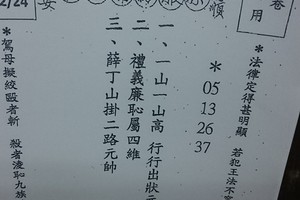 卷用
*法律定得甚明顯 若犯王法不
*
05
13
26
37
一、一山一山高 行行出狀元
二、禮義廉恥屬四維
三、薛丁山掛二路元帥
*駕母擬絞毆者斬 殺者凌恥九族
2/24